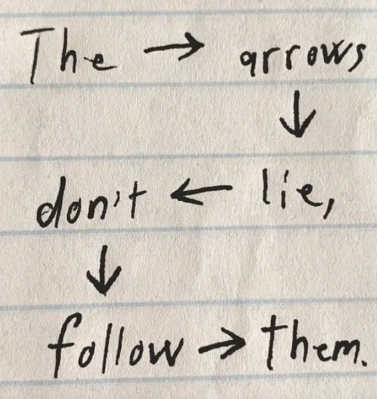 The → arrows
↓
don't ← lie,
↓
follow → them.